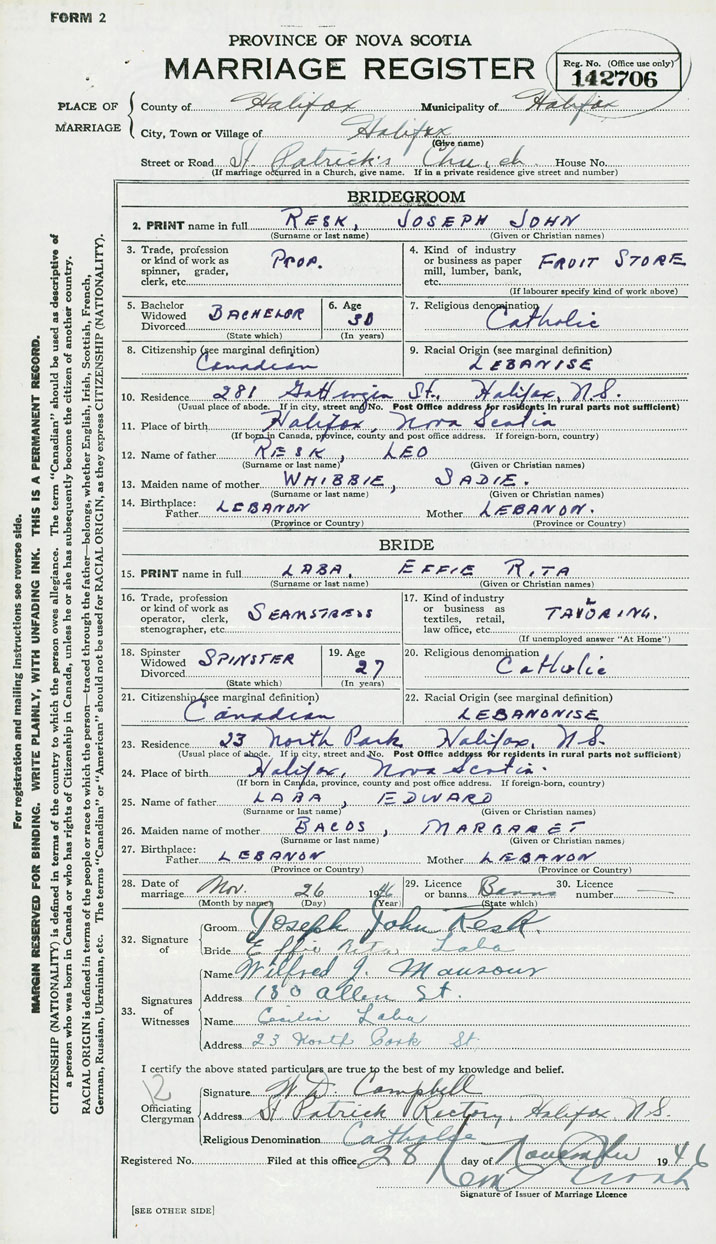 FORM 2
PROVINCE OF NOVA SCOTIA
MARRIAGE REGISTER
Reg. No. (Office use only)
142706
PLACE OF MARRIAGE
County of Halifax Municipality of Halifax
City, Town or Village of Halifax
(Give name)
Street or Road St. Patrick's Church House No.
(If marriage occurred in a Church, give name. If in a private residence give street and number)
BRIDEGROOM
2. PRINT name in full RESK, JOSEPH JOHN
(Surname or last name) (Given or Christian names)
3. Trade, profession or kind of work as spinner, grader, clerk, etc. PROP.
4. Kind of industry or business as paper mill, lumber, bank, etc. FRUIT STORE
(If labourer specify kind of work above)
5. Bachelor Widowed Divorced BACHELOR
(State which)
6. Age 30
(In years)
7. Religious denomination Catholic
8. Citizenship (see marginal definition) Canadian
9. Racial Origin (see marginal definition) LEBANISE
10. Residence 281 St., Halifax, N.S.
(Usual place of abode. If in city, street and No. Post Office address for residents in rural parts not sufficient)
11. Place of birth Halifax, Nova Scotia
(If born in Canada, province, county and post office address. If foreign-born, country)
12. Name of father RESK, LEO
(Surname or last name) (Given or Christian names)
13. Maiden name of mother WHIBBIE, SADIE.
(Surname or last name) (Given or Christian names)
14. Birthplace: Father LEBANON Mother LEBANON.
(Province or Country) (Province or Country)
BRIDE
15. PRINT name in full LABA, EFFIE RITA
(Surname or last name) (Given or Christian names)
16. Trade, profession or kind of work as operator, clerk, stenographer, etc. SEAMSTRESS
17. Kind of industry or business as textiles, retail, law office, etc.
(If unemployed answer "At Home")
18. Spinster Widowed Divorced SPINSTER
(State which)
19. Age 27
(In years)
20. Religious denomination Catholic
21. Citizenship (see marginal definition) Canadian
22. Racial Origin (see marginal definition) LEBANONISE
23. Residence 23 North Park Halifax, N.S.
(Usual place of abode. If in city, street and No. Post Office address for residents in rural parts not sufficient)
24. Place of birth Halifax, Nova Scotia.
(If born in Canada, province, county and post office address. If foreign-born, country)
25. Name of father LABA, EDWARD
(Surname or last name) (Given or Christian names)
26. Maiden name of mother BACOS, MARGARET
(Surname or last name) (Given or Christian names)
27. Birthplace: Father LEBANON Mother LEBANON
(Province or Country) (Province or Country)
28. Date of marriage Nov. 26 1946
(Month by name) (Day) (Year)
29. Licence or banns Banns
(State which)
30. Licence number —
32. Signature of
Groom Joseph John Resk.
Bride Effie Rita Laba
33. Signatures of Witnesses
Name Wilfred J. Mansour
Address 130 Allen St.
Name Cecilia Laba
Address 23 North Park St.
I certify the above stated particulars are true to the best of my knowledge and belief.
12
Officiating Clergyman
Signature W. D. Campbell
Address St Patrick Rectory, Halifax N.S.
Religious Denomination Catholic
Registered No. Filed at this office 28 day of November 1946
Signature of Issuer of Marriage Licence
[SEE OTHER SIDE]
For registration and mailing instructions see reverse side.
MARGIN RESERVED FOR BINDING. WRITE PLAINLY, WITH UNFADING INK. THIS IS A PERMANENT RECORD.
CITIZENSHIP (NATIONALITY) is defined in terms of the country to which the person owes allegiance. The term "Canadian" should be used as descriptive of
a person who was born in Canada or who has rights of Citizenship in Canada, unless he or she has subsequently become the citizen of another country.
RACIAL ORIGIN is defined in terms of the people or race to which the person—traced through the father—belongs, whether English, Irish, Scottish, French,
German, Russian, Ukrainian, etc. The terms "Canadian" or "American" should not be used for RACIAL ORIGIN, as they express CITIZENSHIP (NATIONALITY).